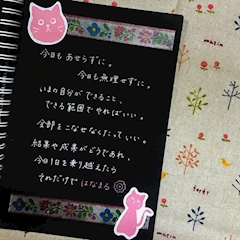 今日も あせらずに。
今日も無理せずに。
いまの自分が できること、
できる範囲で やればいい。
全部をこなせなくたっていい。
結果や成果がどうであれ、
今日1日を乗り越えたら
それだけで はなまる
matin
matin